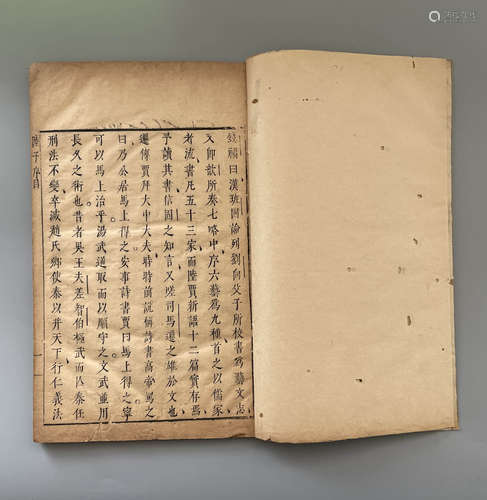 錢福曰漢班固論列劉向父子所校書爲藝文志
又卽歆所奏七略中序六藝爲九種首之以儒家
者流書凡五十三家而陸賈新語十二篇實存焉
予讀其書信固之知言又嗟司馬遷之雄於文也
遷傳賈拜大中大夫時時前說稱詩書高帝罵之
曰乃公居馬上得之安事詩書賈曰馬上得之寧
可以馬上治乎湯武逆取而以順守之文武並用
長久之術也昔者吳王夫差智伯極武而亡秦任
刑法不變卒滅趙氏鄉使秦以并天下行仁義法
陸子序